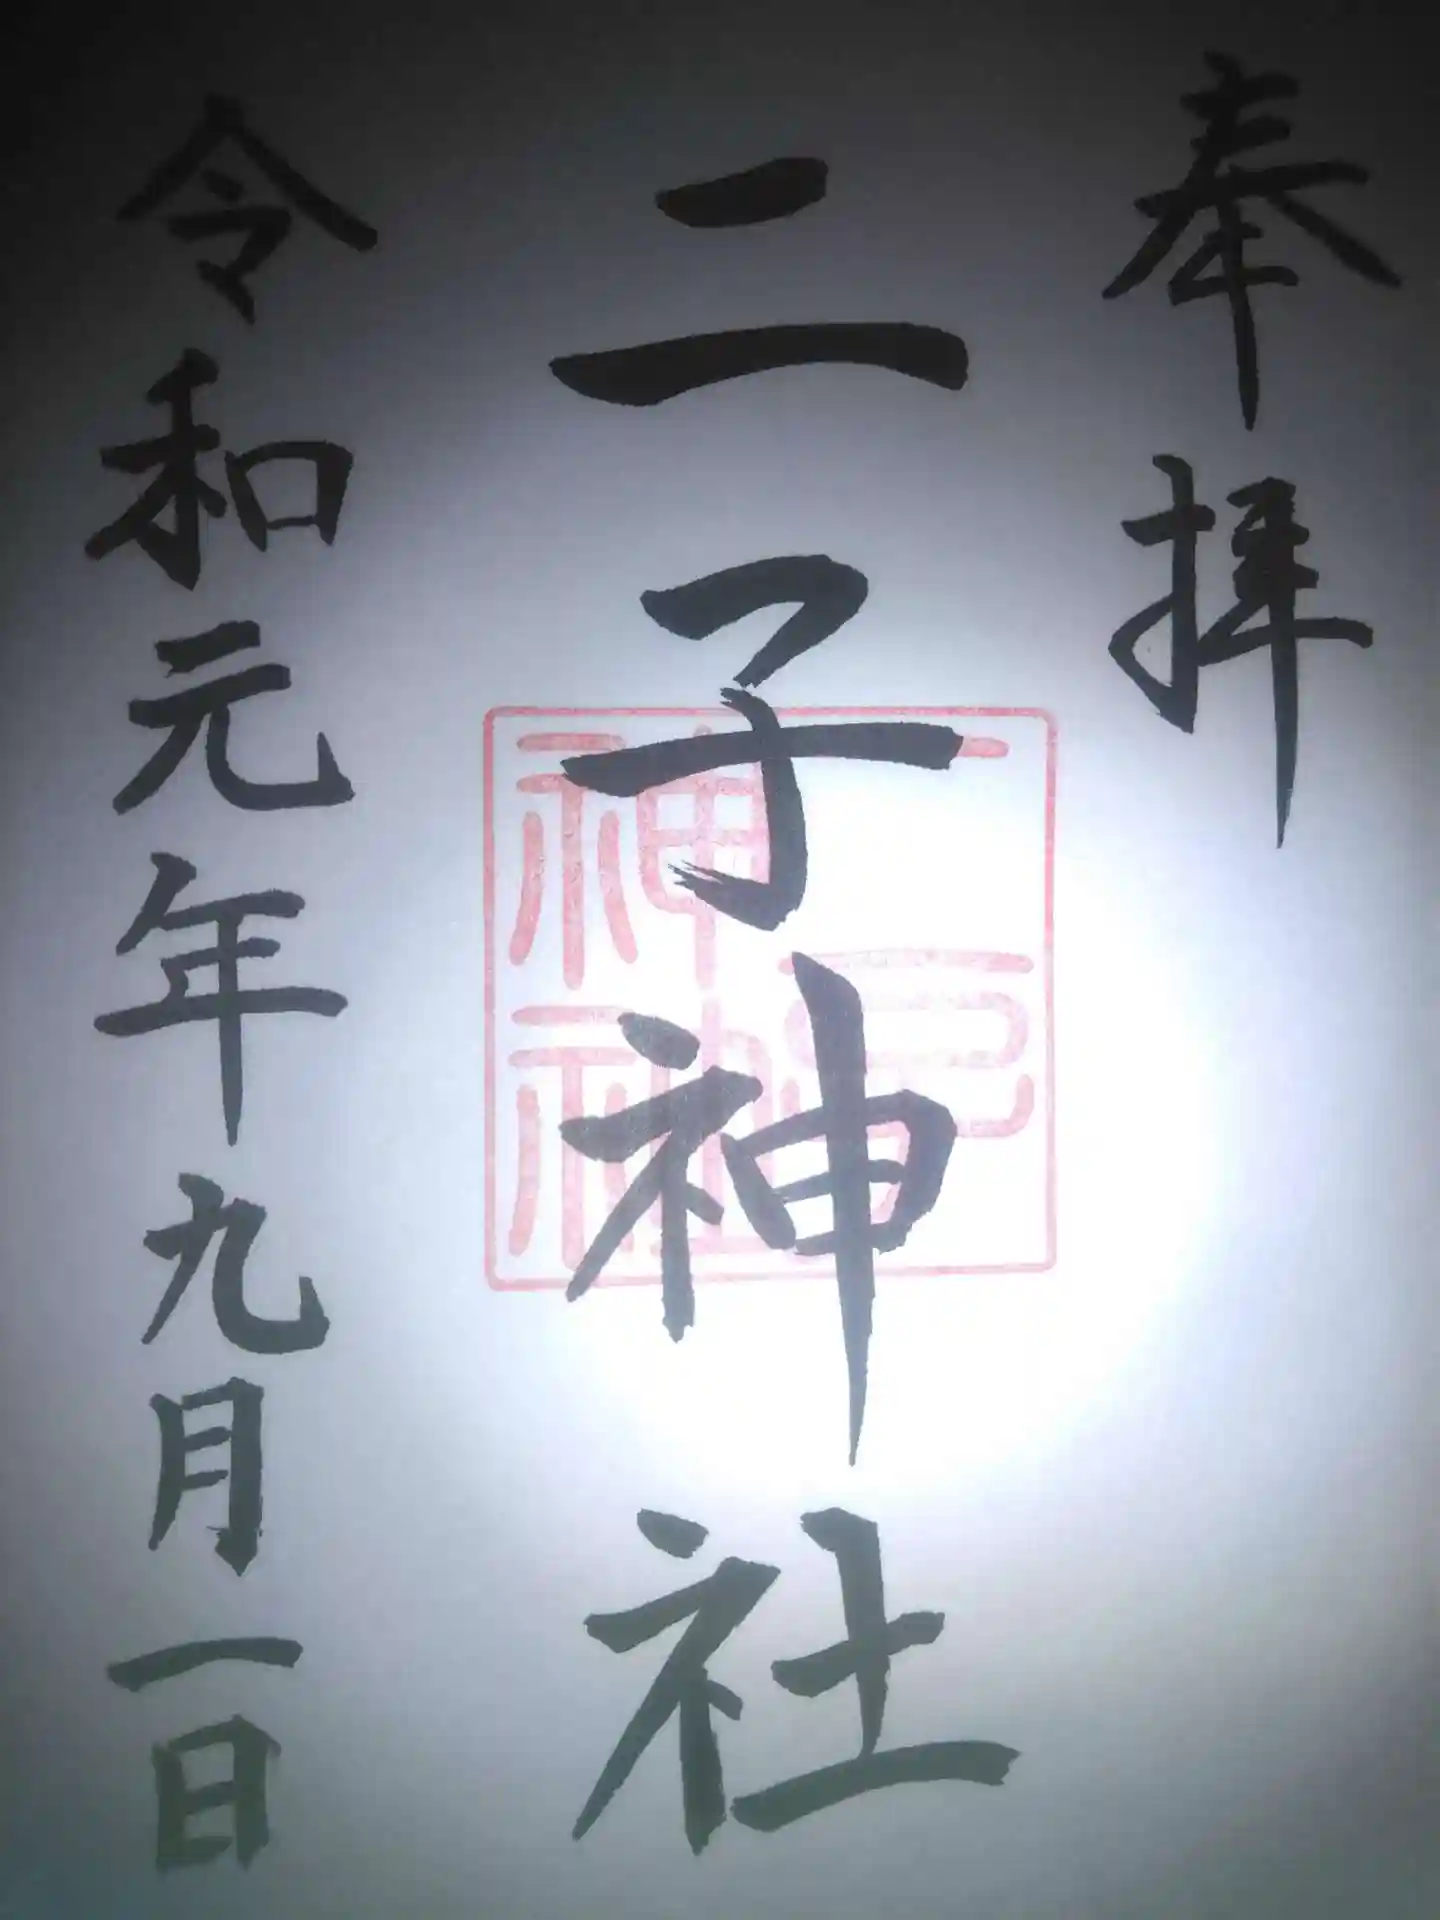 奉拝
二子神社
二子神社
令和元年九月一日